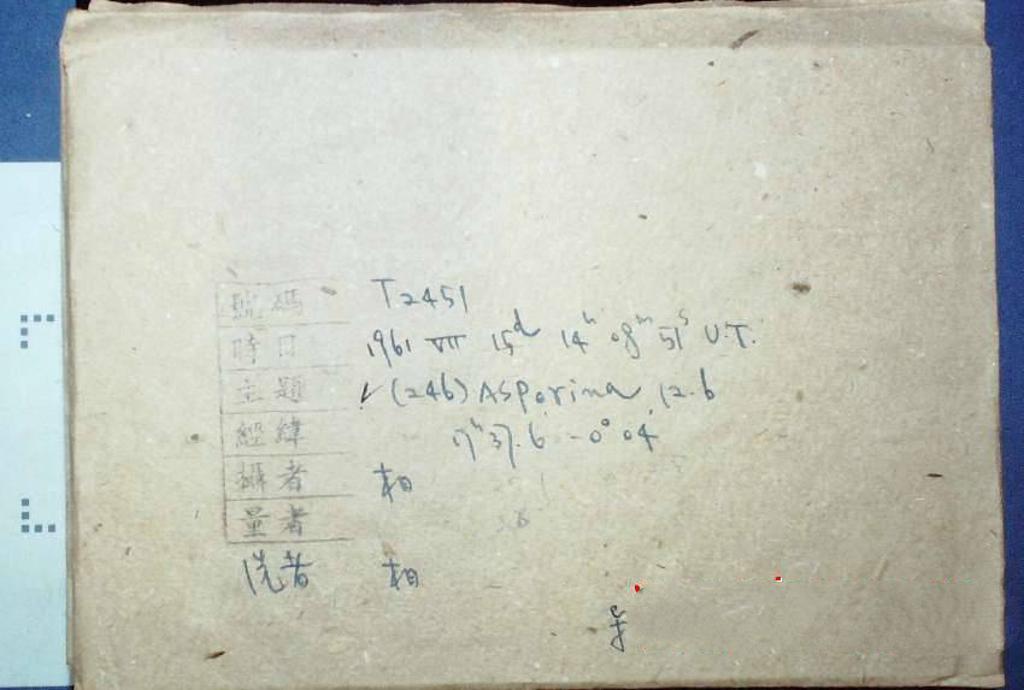 號碼 T2451
時日 1961 VII 15d 14h 08m 51s U.T.
主題 ✓(246) Asporina 12.6
經緯 17h 37.6 -0° 04'
攝者 相
量者
洗者 相